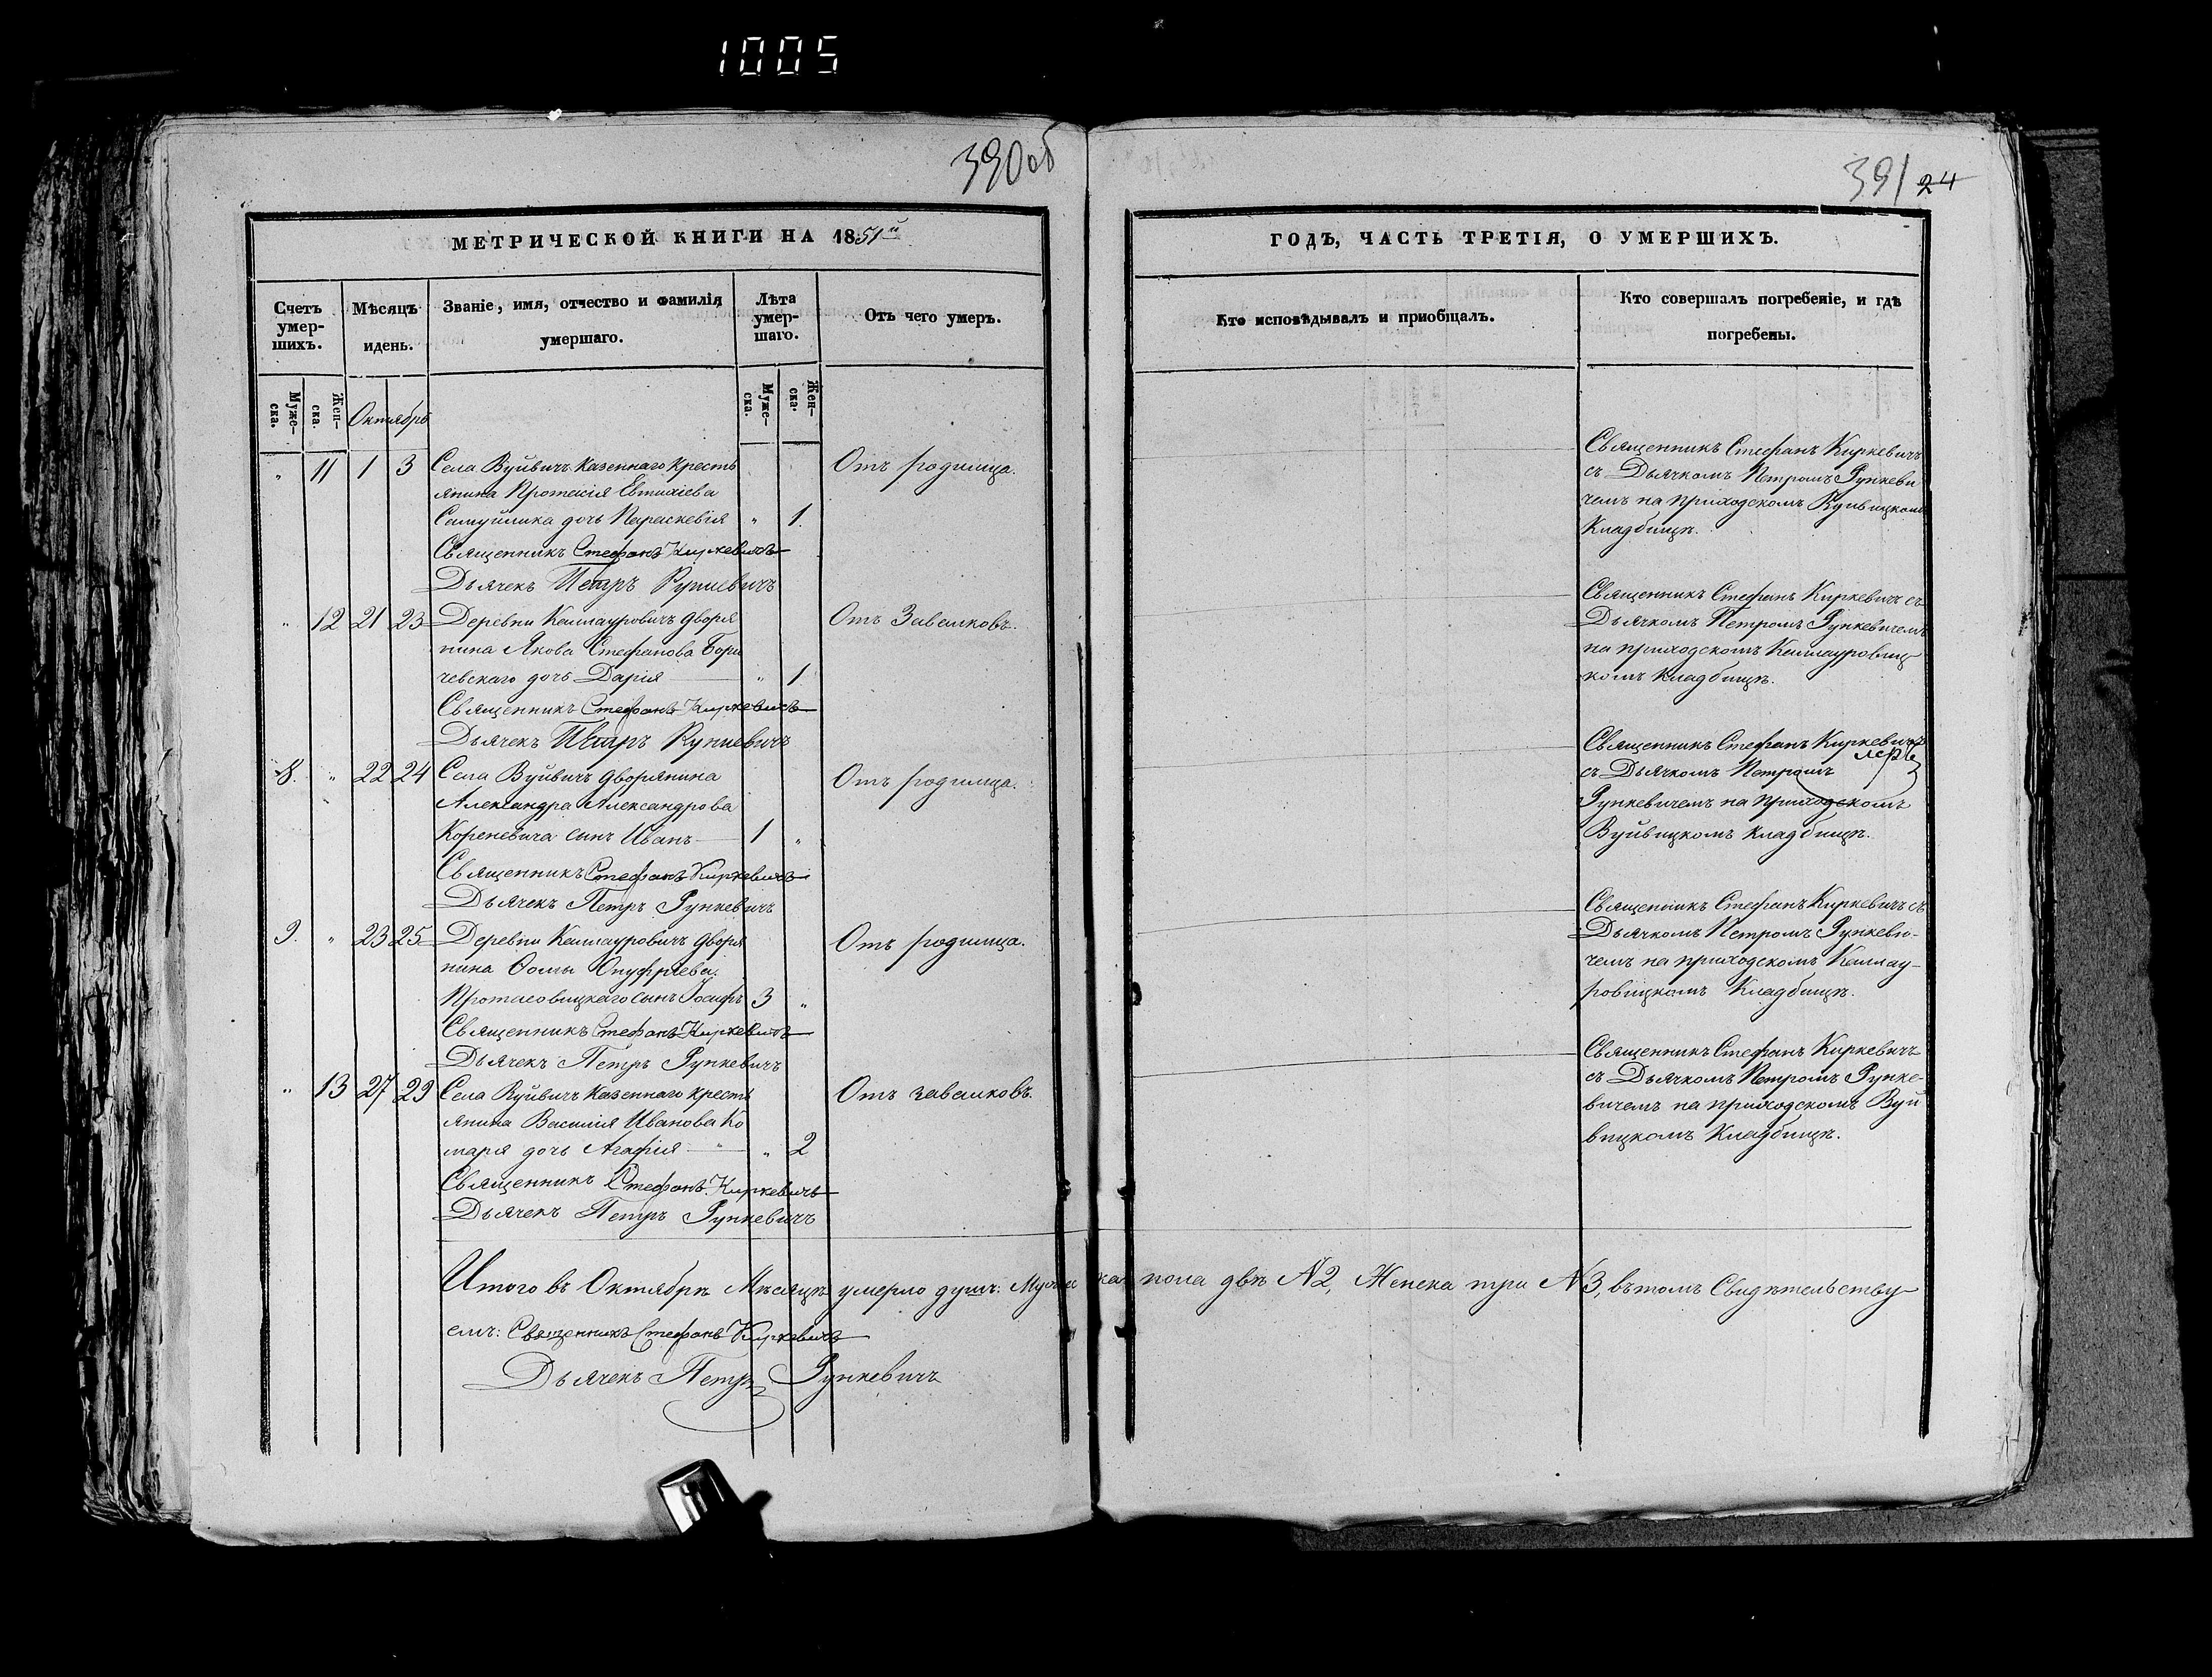 1005
390об
МЕТРИЧЕСКОЙ КНИГИ НА 1851й
Счетъ умер-шихъ.
Мѣсяцъ идень.
Званіе, имя, отчество и фамилія умершаго.
Лѣта умер-шаго.
Отъ чего умеръ.
Муже-ска.
Жен-ска.
Октябрь
Муже-ска.
Жен-ска.
" 11 1 3 Села Вуйвичъ казеннаго кресть Отъ родимца.
янина Протасія Евтихіева
Самуйлика дочь Параскевія " 1.
Священникъ Стефанъ Киркевичъ
Дьячекъ Петръ Рункевичъ
" 12 21 23 Деревни Каллауровичъ дворя Отъ Завалковъ.
нина Якова Стефанова Бори
чевскаго дочь Дарія " 1
Священникъ Стефанъ Киркевичъ
Дьячекъ Петръ Рункевичъ
8. " 22 24 Села Вуйвичъ дворянина Отъ родимца.
Александра Александрова
Кореневича сынъ Иванъ 1 "
Священникъ Стефанъ Киркевичъ
Дьячекъ Петръ Рункевичъ
9. " 23 25 Деревни Каллауровичъ дворя Отъ родимца.
нина Ѳомы Онуфріева
Протасовицкаго сынъ Іосифъ 3 "
Священникъ Стефанъ Киркевичъ
Дьячекъ Петръ Рункевичъ
" 13 27 29 Села Вуйвичъ казеннаго кресть Отъ завалковъ.
янина Василія Иванова Ко
маря дочь Агафія " " 2
Священникъ Стефанъ Киркевичъ
Дьячекъ Петръ Рункевичъ
Итого въ Октябрѣ Мѣсяцѣ умерло душъ: Мужеска пола двѣ №2, Женска три №3, въ томъ Свидѣтельству
емъ: Священникъ Стефанъ Киркевичъ
Дьячекъ Петръ Рункевичъ
391 24
ГОДЪ, ЧАСТЬ ТРЕТІЯ, О УМЕРШИХЪ.
Кто исповѣдывалъ и пріобщалъ.
Кто совершалъ погребеніе, и гдѣ погребены.
Священникъ Стефанъ Киркевичъ
съ Дьячкомъ Петромъ Рункеви
чемъ на приходскомъ Вуйвицкомъ
Кладбищѣ.
Священникъ Стефанъ Киркевичъ съ
Дьячкомъ Петромъ Рункевичемъ
на приходскомъ Каллауровиц
комъ кладбищѣ.
Священникъ Стефанъ Киркевичъ
съ Дьячкомъ Петромъ
Рункевичемъ на приходскомъ
Вуйвицкомъ кладбищѣ.
Священникъ Стефанъ Киркевичъ съ
Дьячкомъ Петромъ Рункеви-
чемъ на приходскомъ Каллау-
ровицкомъ Кладбищѣ.
Священникъ Стефанъ Киркевичъ
съ Дьячкомъ Петромъ Рунке-
вичемъ на приходскомъ Вуй
вицкомъ Кладбищѣ.